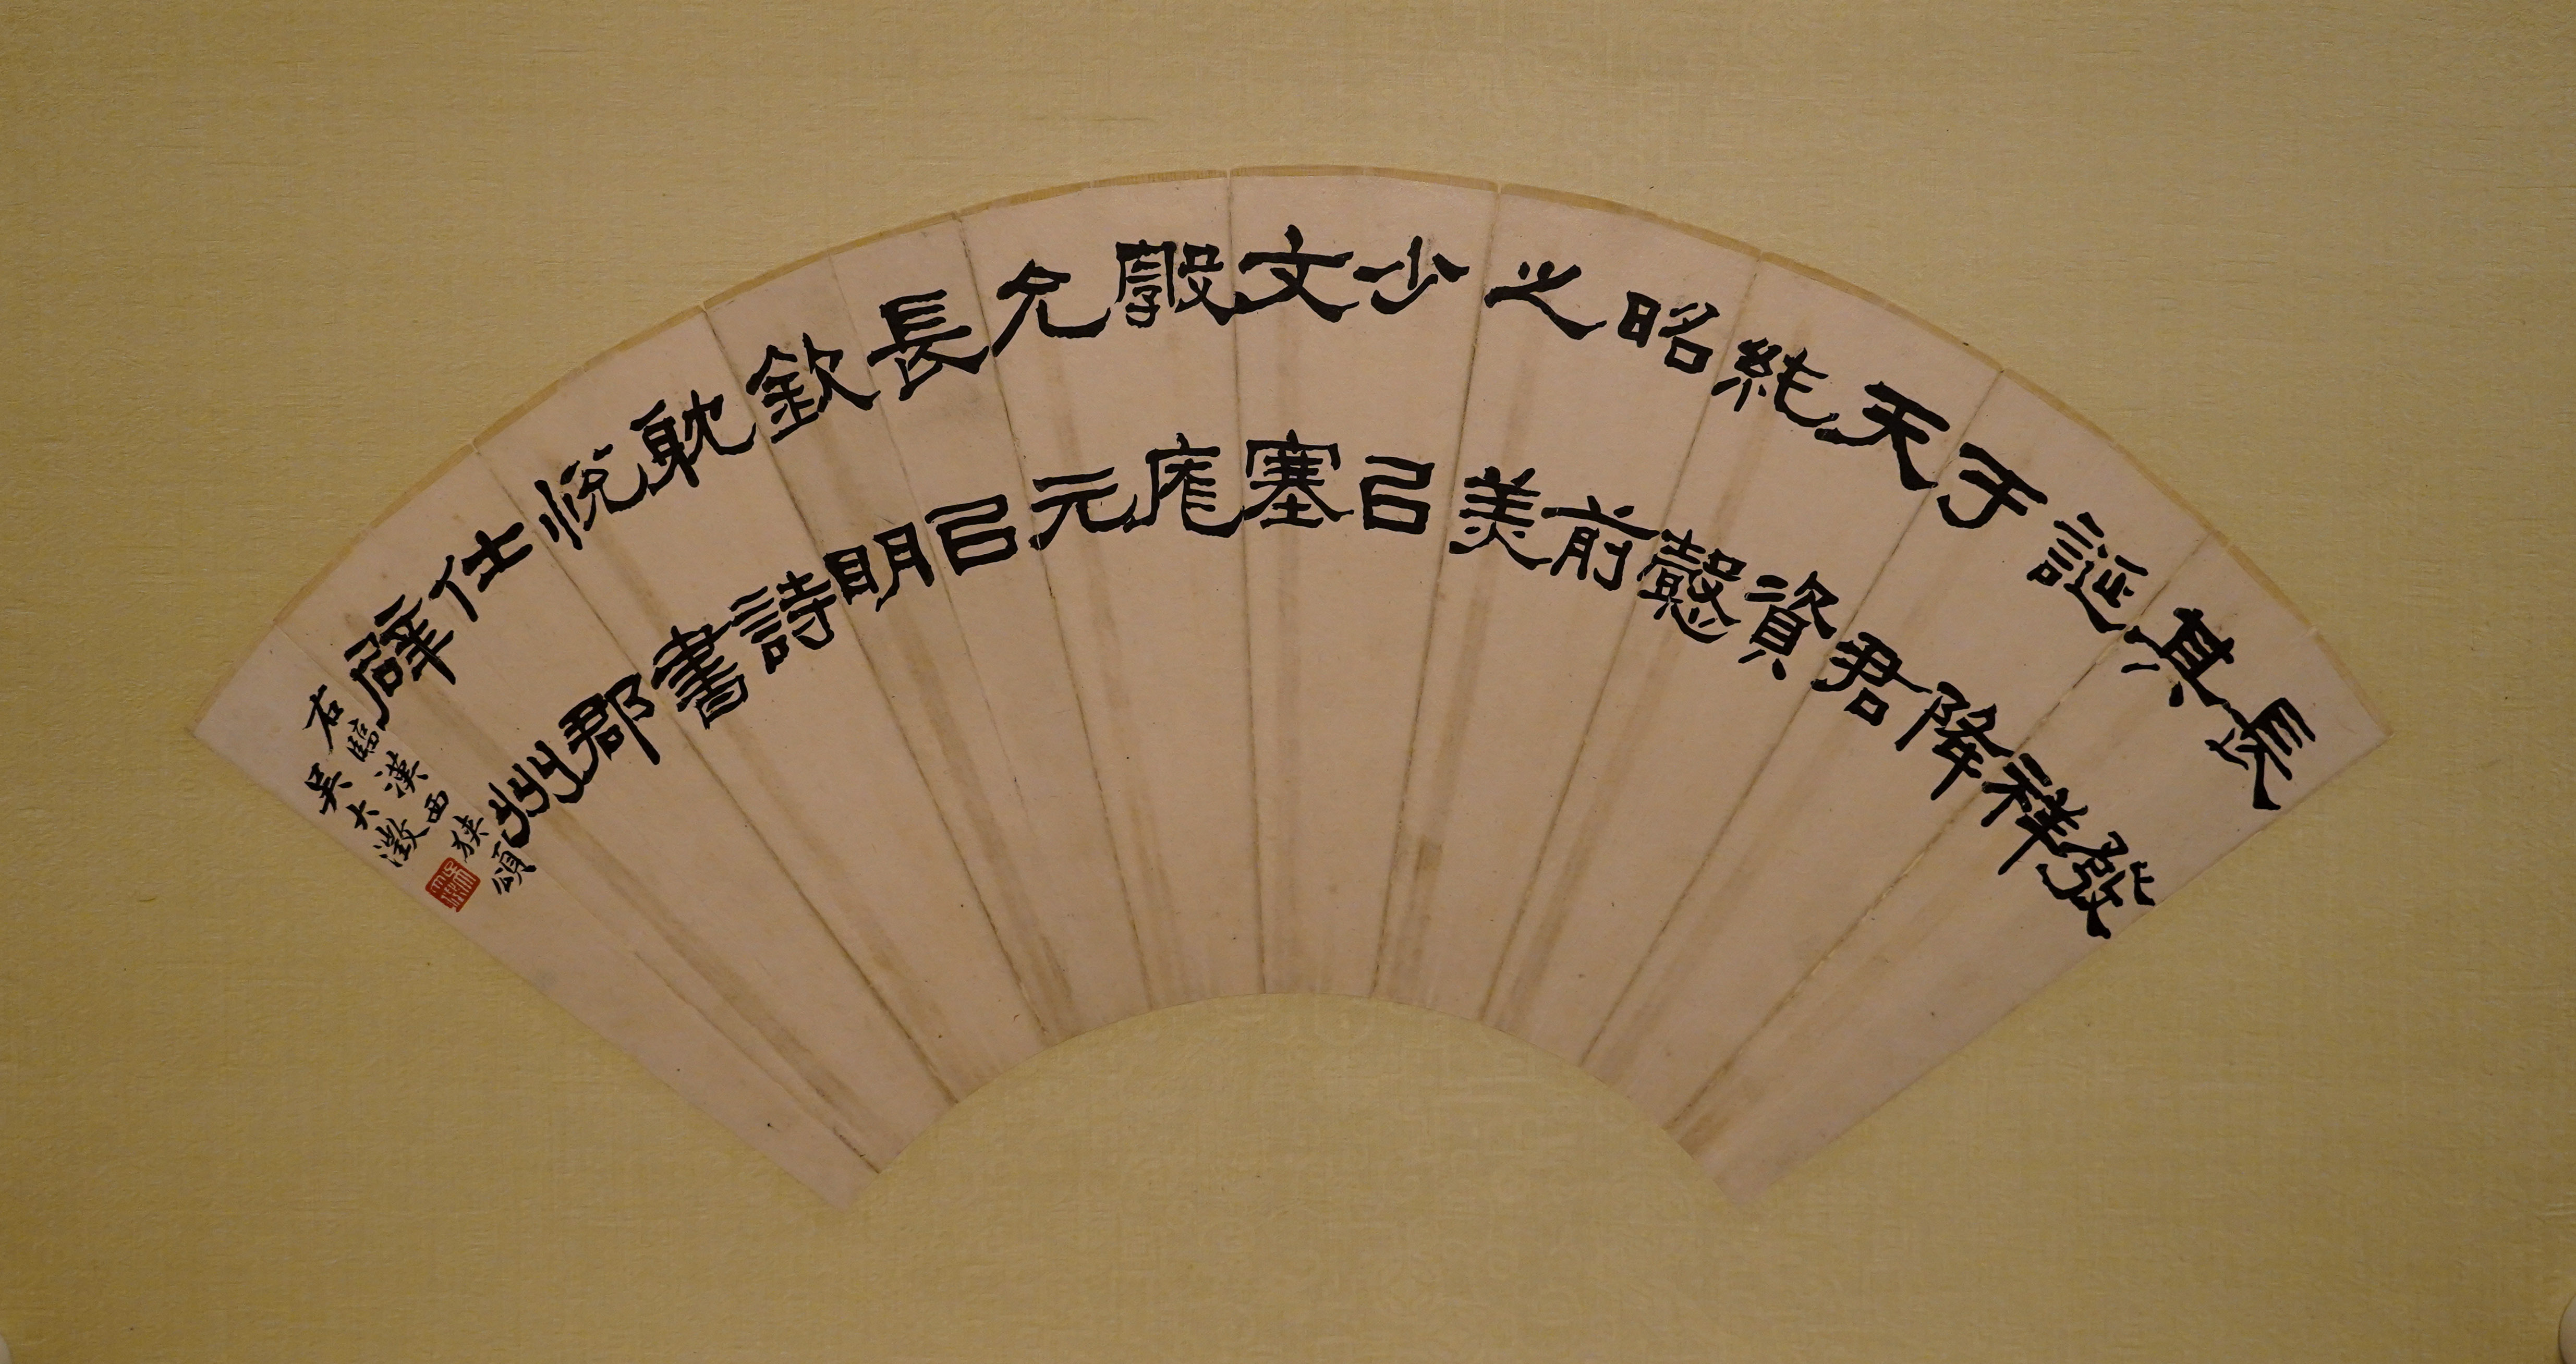 長發
其祥
誕降
于君
天資
純懿
昭前
之美
少㠯
文塞
敦庬
允元
長㠯
欽明
耽詩
悅書
仕郡
辟州
右臨漢西狹頌
吳大澂